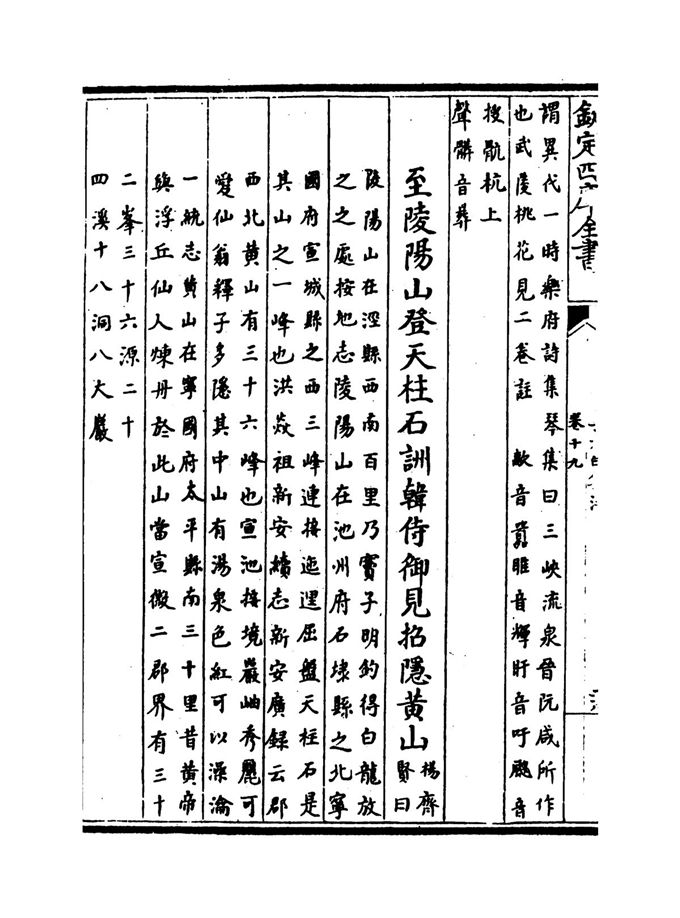 欽定四庫全書
卷十九
謂異代一時樂府詩集琴集曰三峽流泉晉阮咸所作
也武陵桃花見二卷註　歊音囂睢音輝盱音吁颷音
搜骯杭上
聲髒音葬
至陵陽山登天柱石詶韓侍御見招隱黄山
楊齊
賢曰
陵陽山在涇縣西南百里乃竇子明釣得白龍放
之之處按地志陵陽山在池州府石埭縣之北寧
國府宣城縣之西三峰連接迤邐屈盤天柱石是
其山之一峰也洪焱祖新安續志新安廣録云郡
西北黄山有三十六峰也宣池接境巖岫秀麗可
愛仙翁釋子多隱其中山有湯泉色紅可以澡瀹
一統志黄山在寧國府太平縣南三十里昔黄帝
與浮丘仙人煉丹於此山當宣徽二郡界有三十
二峯三十六源二十
四溪十八洞八大巖